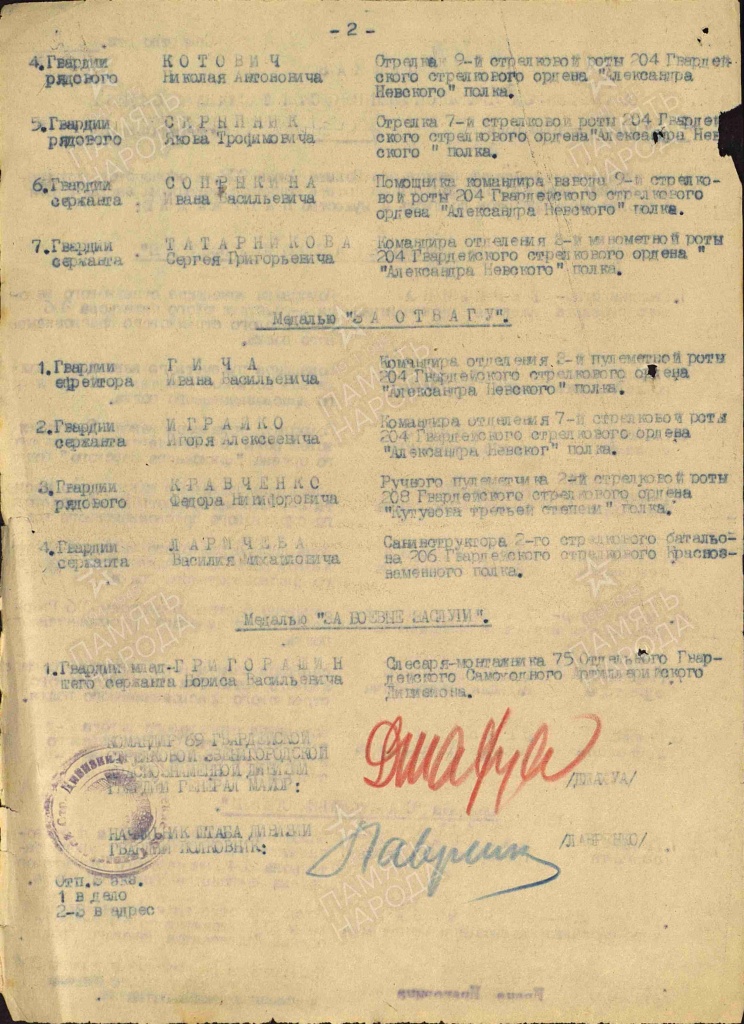 - 2 -
4. Гвардии К О Т О В И Ч Стрелка 9-й стрелковой роты 204 Гвардей-
рядового Николая Антоновича ского стрелкового ордена "Александра
Невского" полка.
5. Гвардии С К Р Ы П Н И К Стрелка 7-й стрелковой роты 204 Гвардей-
рядового Якова Трофимовича ского стрелкового ордена "Александра Нев-
ского " полка.
6. Гвардии С О П Р Ы К И Н А Помощника командира взвода 9-й стрелко-
сержанта Ивана Васильевича вой роты 204 Гвардейского стрелкового
ордена "Александра Невского" полка.
7. Гвардии Т А Т А Р Н И К О В А Командира отделения 3-й минометной роты
сержанта Сергея Григорьевича 204 Гвардейского стрелкового ордена "
"Александра Невского" полка.
Медалью "ЗА О Т В А Г У".
1. Гвардии Г И Ч А Командира отделения 3-й пулеметной роты
ефрейтора Ивана Васильевича 204 Гвардейского стрелкового ордена
"Александра Невского" полка.
2. Гвардии И Г Р А Й К О Командира отделения 7-й стрелковой роты
сержанта Игоря Алексеевича 204 Гвардейского стрелкового ордена
"Александра Невског" полка.
3. Гвардии К Р А В Ч Е Н К О Ручного пулеметчика 2-й стрелковой роты
рядового Федора Никифоровича 208 Гвардейского стрелкового ордена
"Кутузова третьей степени" полка.
4. Гвардии Л А Р И Ч Е В А Санинструктора 2-го стрелкового батальо-
сержанта Василия Михайловича на 206 Гвардейского стрелкового Красноз-
наменного полка.
Медалью "ЗА БОЕВЫЕ ЗАСЛУГИ".
1. Гвардии млад- Г Р И Г О Р А Ш И Н Слесаря-монтажника 75 Отдельного Гвар-
шего сержанта Бориса Васильевича дейского Самоходного Артиллерийского
Дивизиона.
КОМАНДИР 69 ГВАРДЕЙСКОЙ
СТРЕЛКОВОЙ ЗВЕНИГОРОДСКОЙ
КРАСНОЗНАМЕННОЙ ДИВИЗИИ
ГВАРДИИ ГЕНЕРАЛ МАЙОР: /ДЖАХУА/
НАЧАЛЬНИК ШТАБА ДИВИЗИИ
ГВАРДИИ ПОЛКОВНИК: /ЛАВРЕНКО/
Отп. 5 экз.
1 в дело
2-5 в адрес
ПАМЯТЬ
НАРОДА